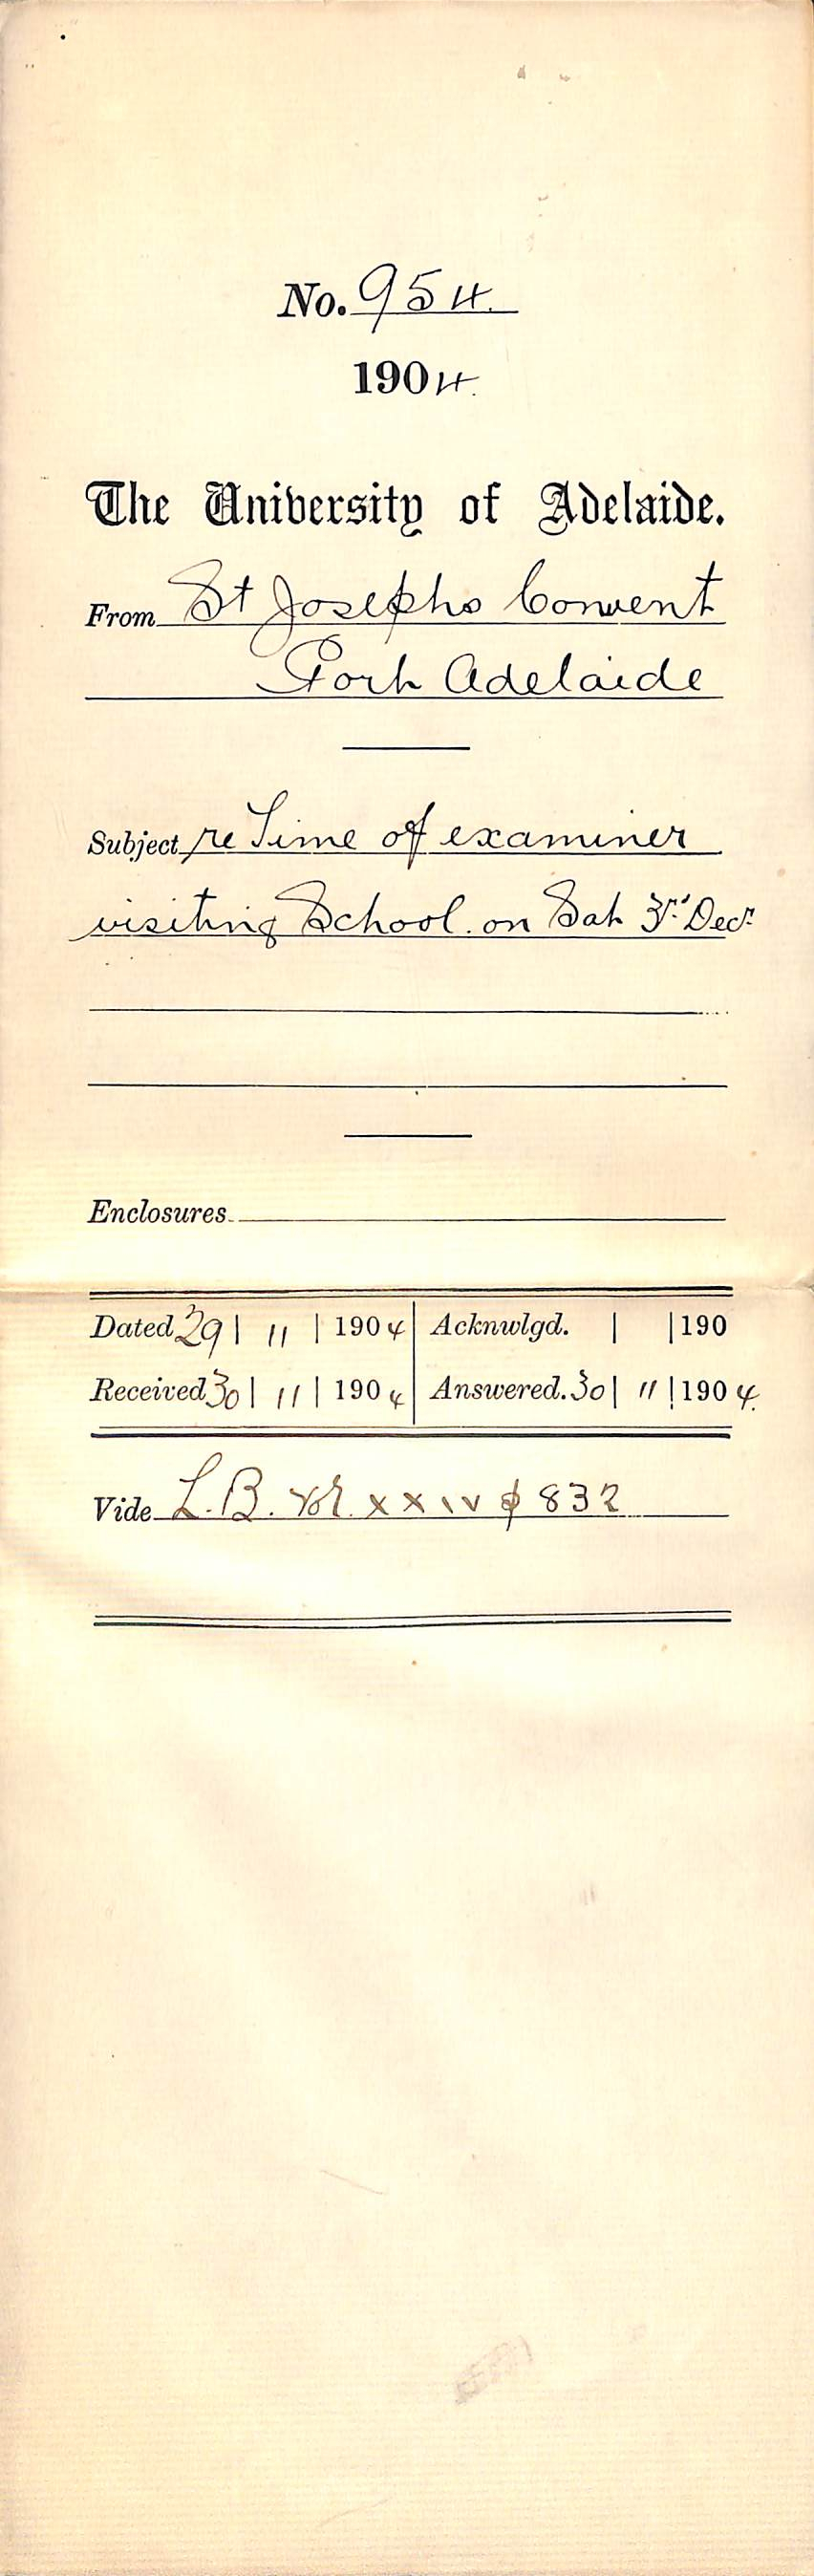 No. 954.
1904.
The University of Adelaide.
From St Josephs Convent
Port Adelaide
Subject re Time of examiner
visiting School. on Sat 3rd Decr
Enclosures
Dated 29 | 11 | 1904 | Acknwlgd. | | 190
Received 30 | 11 | 1904 | Answered. 30 | 11 | 1904.
Vide L.B. Vol. xxiv p 832